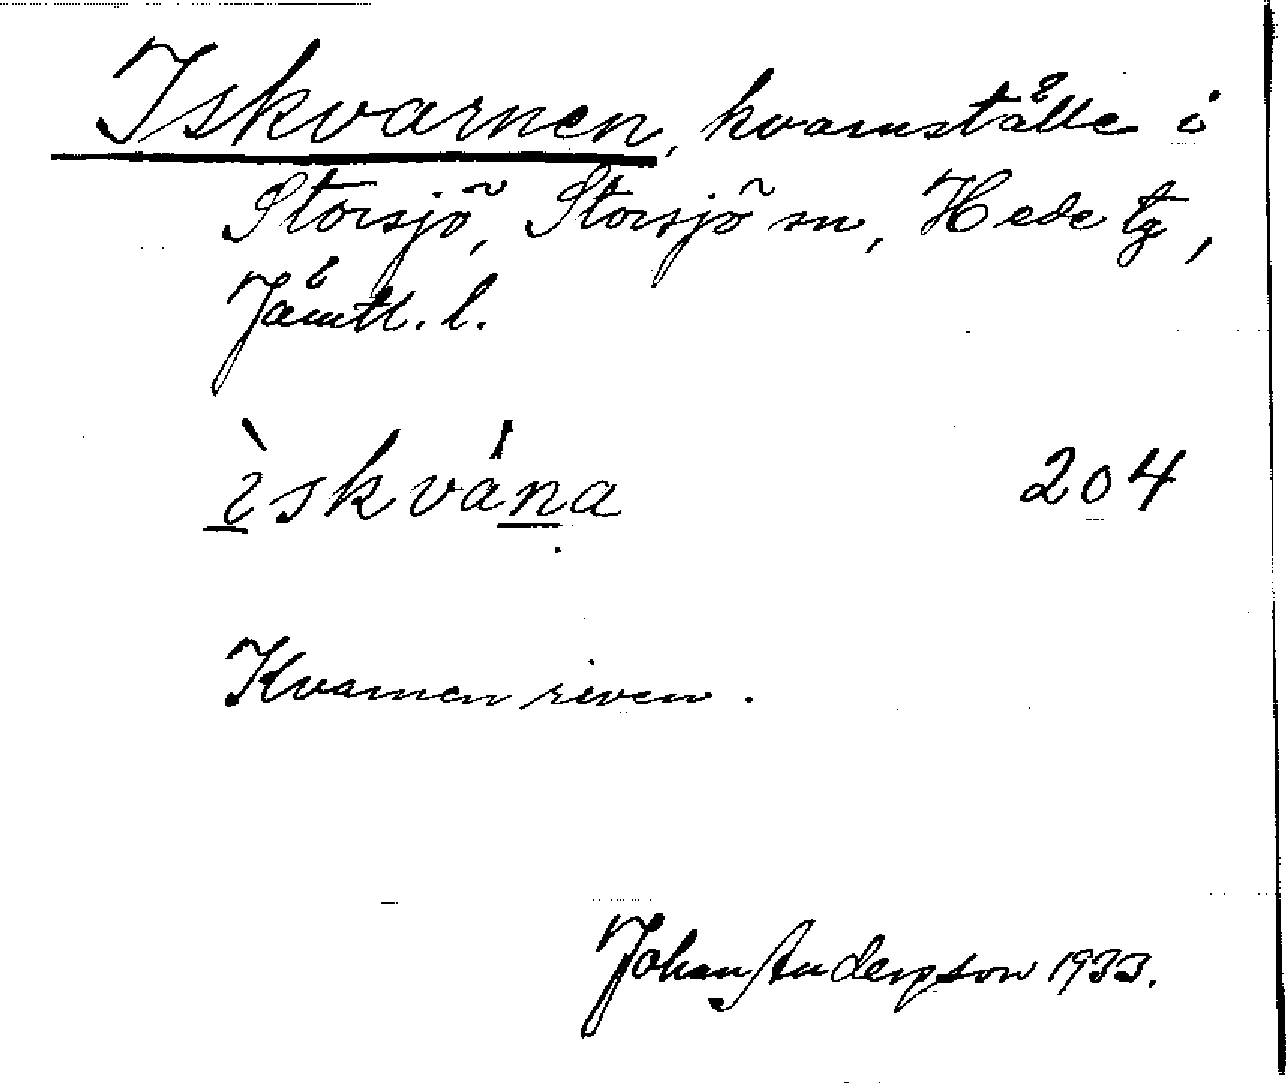 Iskvarnen, kvarnställe i
Storsjö, Storsjö sn, Hede tg,
Jämtl. l.
ìskvána 204
Kvarnen riven.
Johan Anderson 1933.